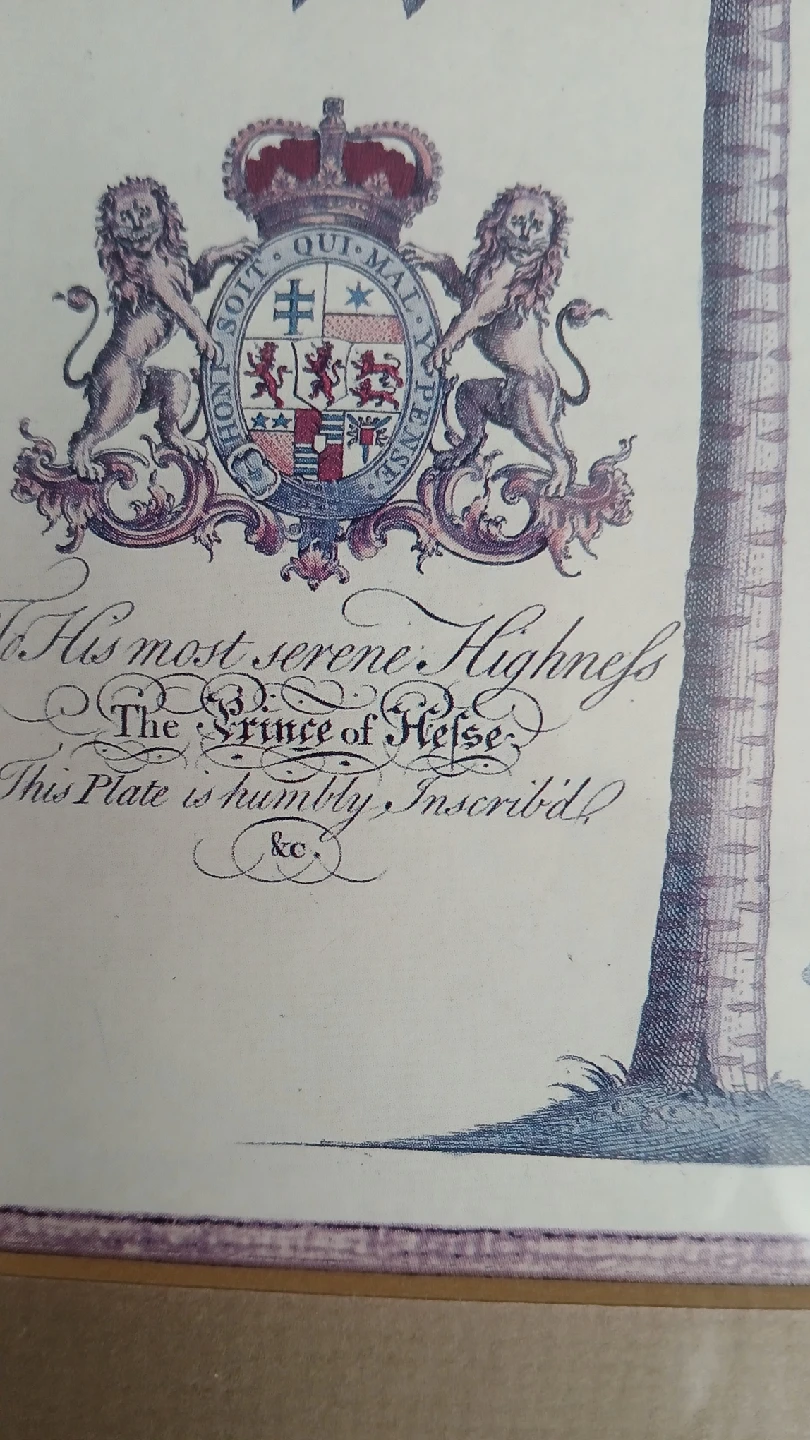 HONI · SOIT · QUI · MAL · Y · PENSE ·
To His most serene Highneſs
The Prince of Heſse
This Plate is humbly Inscrib'd
&c.